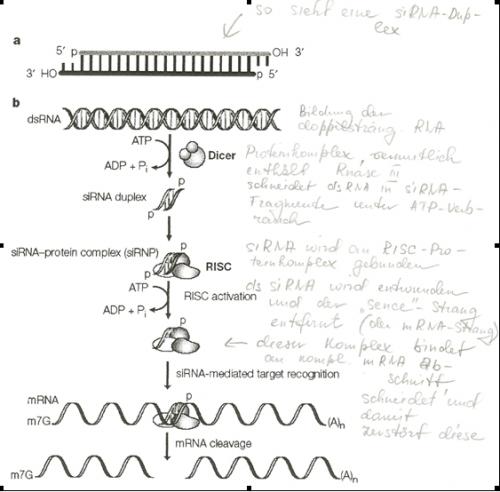 so sieht eine siRNA-Dup-
lex
a
5' p OH 3'
3' HO p 5'
b
dsRNA
Bildung der
doppelsträng. RNA
ATP
Dicer
ADP + Pi
Proteinkomplex, vermutlich
enthält RNase III
schneidet dsRNA in siRNA-
Fragmente unter ATP-Verb-
rauch
p
siRNA duplex
p
siRNA–protein complex (siRNP)
p
p
RISC
siRNA wird an RISC-Pro-
teinkomplex gebunden
ATP
RISC activation
ADP + Pi
ds siRNA wird entwunden
und der „sence"-Strang
entfernt (der mRNA-Strang)
p
← dieser Komplex bindet
an kompl. mRNA Ab-
schnitt
schneidet und
damit
zerstört diese
siRNA-mediated target recognition
mRNA
p
m7G
(A)n
mRNA cleavage
m7G
(A)n